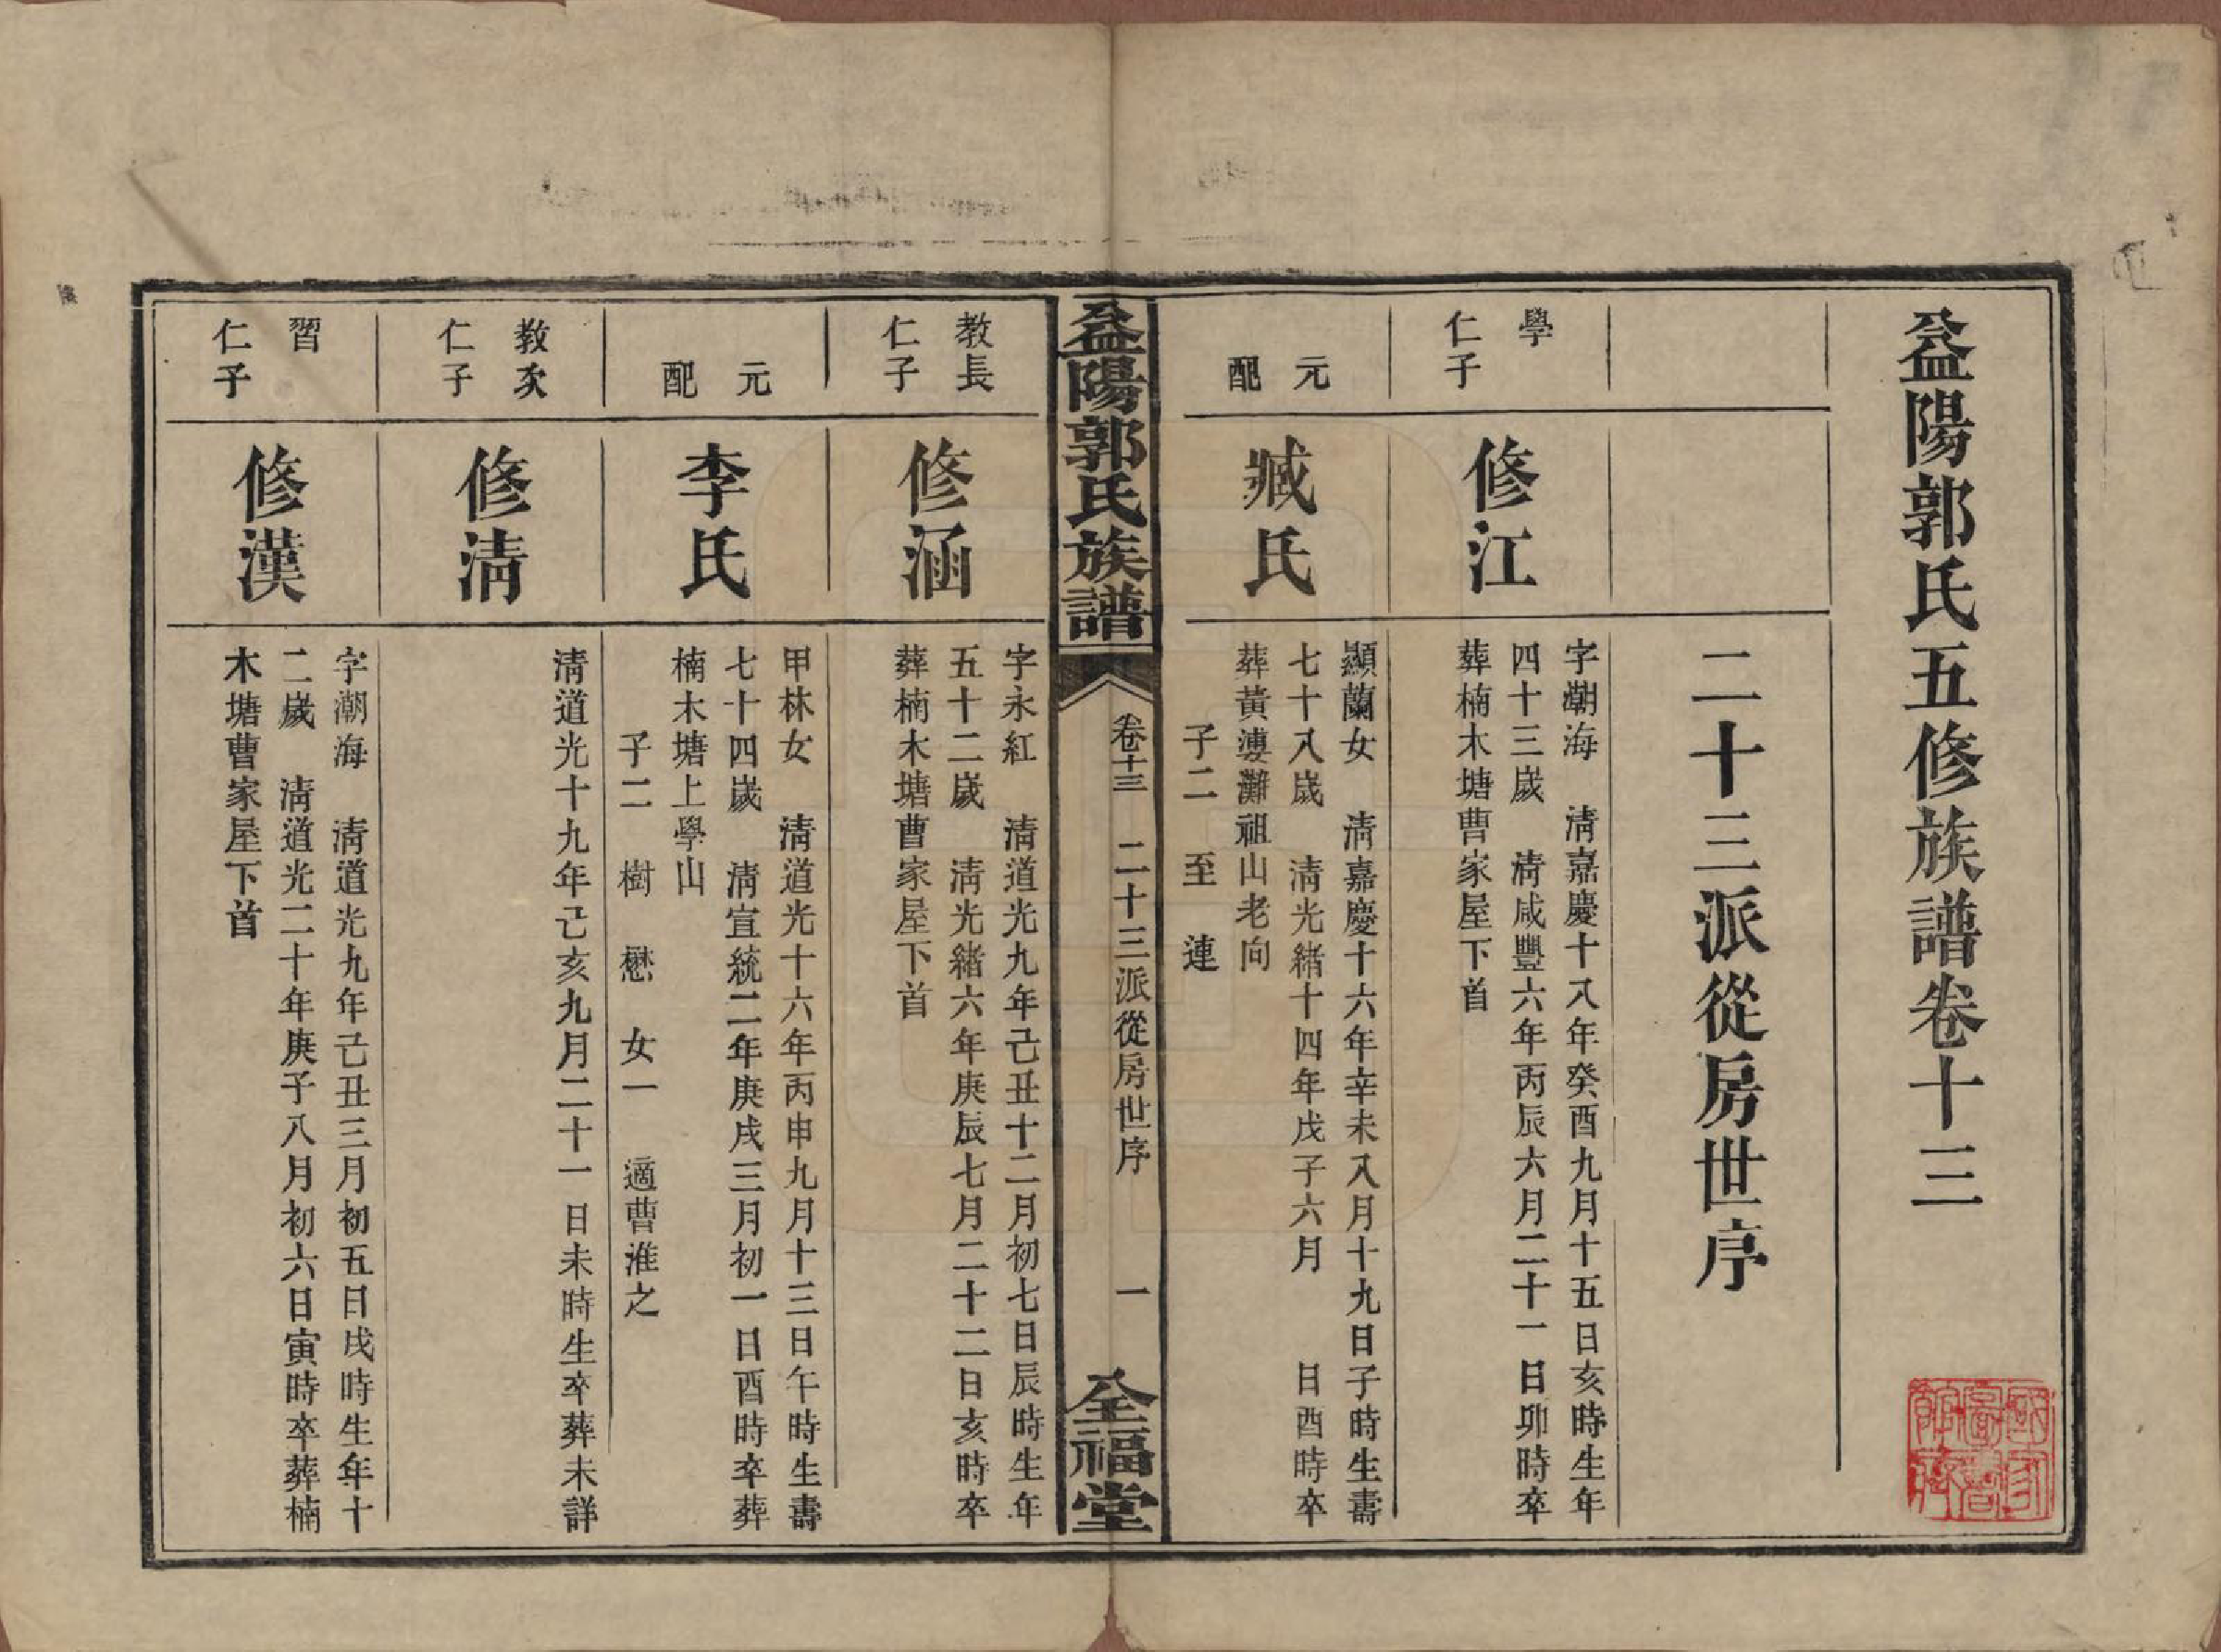 益陽郭氏五修族譜卷十三
二十三派從房世序
學
仁子
修江
字潮海 清嘉慶十八年癸酉九月十五日亥時生年
四十三歲 清咸豐六年丙辰六月二十一日卯時卒
葬楠木塘曹家屋下首
元
配
臧氏
顯蘭女 清嘉慶十六年辛未八月十九日子時生壽
七十八歲 清光緒十四年戊子六月 日酉時卒
葬黃漊灘祖山老向
子二 至 連
益陽郭氏族譜
卷十三 二十三派從房世序 一
全福堂
教長
仁子
修涵
字永紅 清道光九年己丑十二月初七日辰時生年
五十二歲 清光緒六年庚辰七月二十二日亥時卒
葬楠木塘曹家屋下首
元
配
李氏
甲林女 清道光十六年丙申九月十三日午時生壽
七十四歲 清宣統二年庚戌三月初一日酉時卒葬
楠木塘上學山
子二 樹 懋 女一 適曹淮之
教次
仁子
修清
清道光十九年己亥九月二十一日未時生卒葬未詳
習
仁子
修漢
字潮海 清道光九年己丑三月初五日戌時生年十
二歲 清道光二十年庚子八月初六日寅時卒葬楠
木塘曹家屋下首